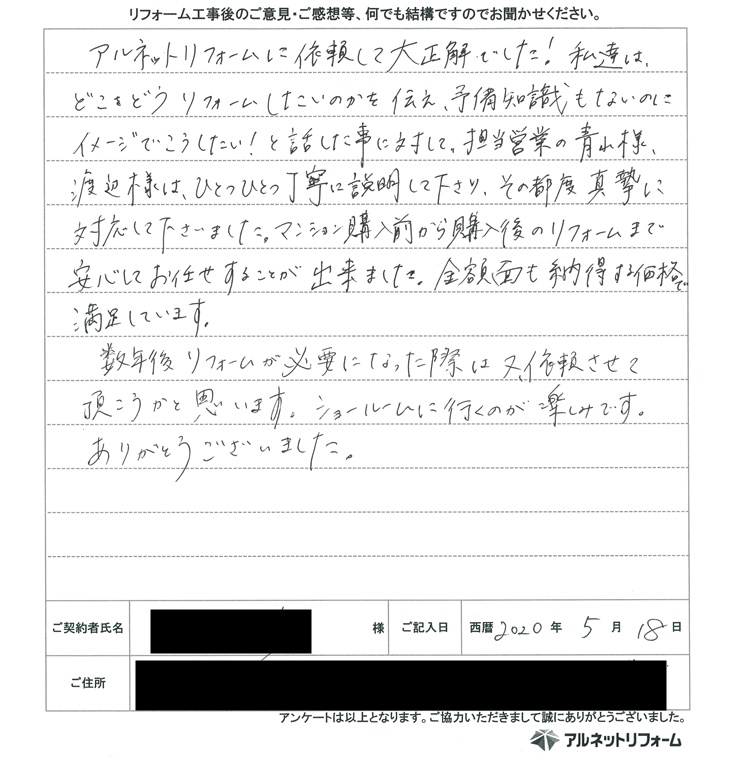 リフォーム工事後のご意見・ご感想等、何でも結構ですのでお聞かせください。
アルネットリフォームに依頼して大正解でした！私達は、
どこをどうリフォームしたいのかを伝え、予備知識もないのに
イメージでこうしたい！と話した事に対して、担当営業の青れ様、
渡辺様は、ひとつひとつ丁寧に説明して下さり、その都度真摯に
対応して下さいました。マンション購入前から購入後のリフォームまで
安心してお任せすることが出来ました。金額面も納得する価格で
満足しています。
数年後リフォームが必要になった際は又、依頼させて
頂こうかと思います。ショールームに行くのが楽しみです。
ありがとうございました。
ご契約者氏名 様 ご記入日 西暦 2020 年 5 月 18 日
ご住所
アンケートは以上となります。ご協力いただきまして誠にありがとうございました。
アルネットリフォーム